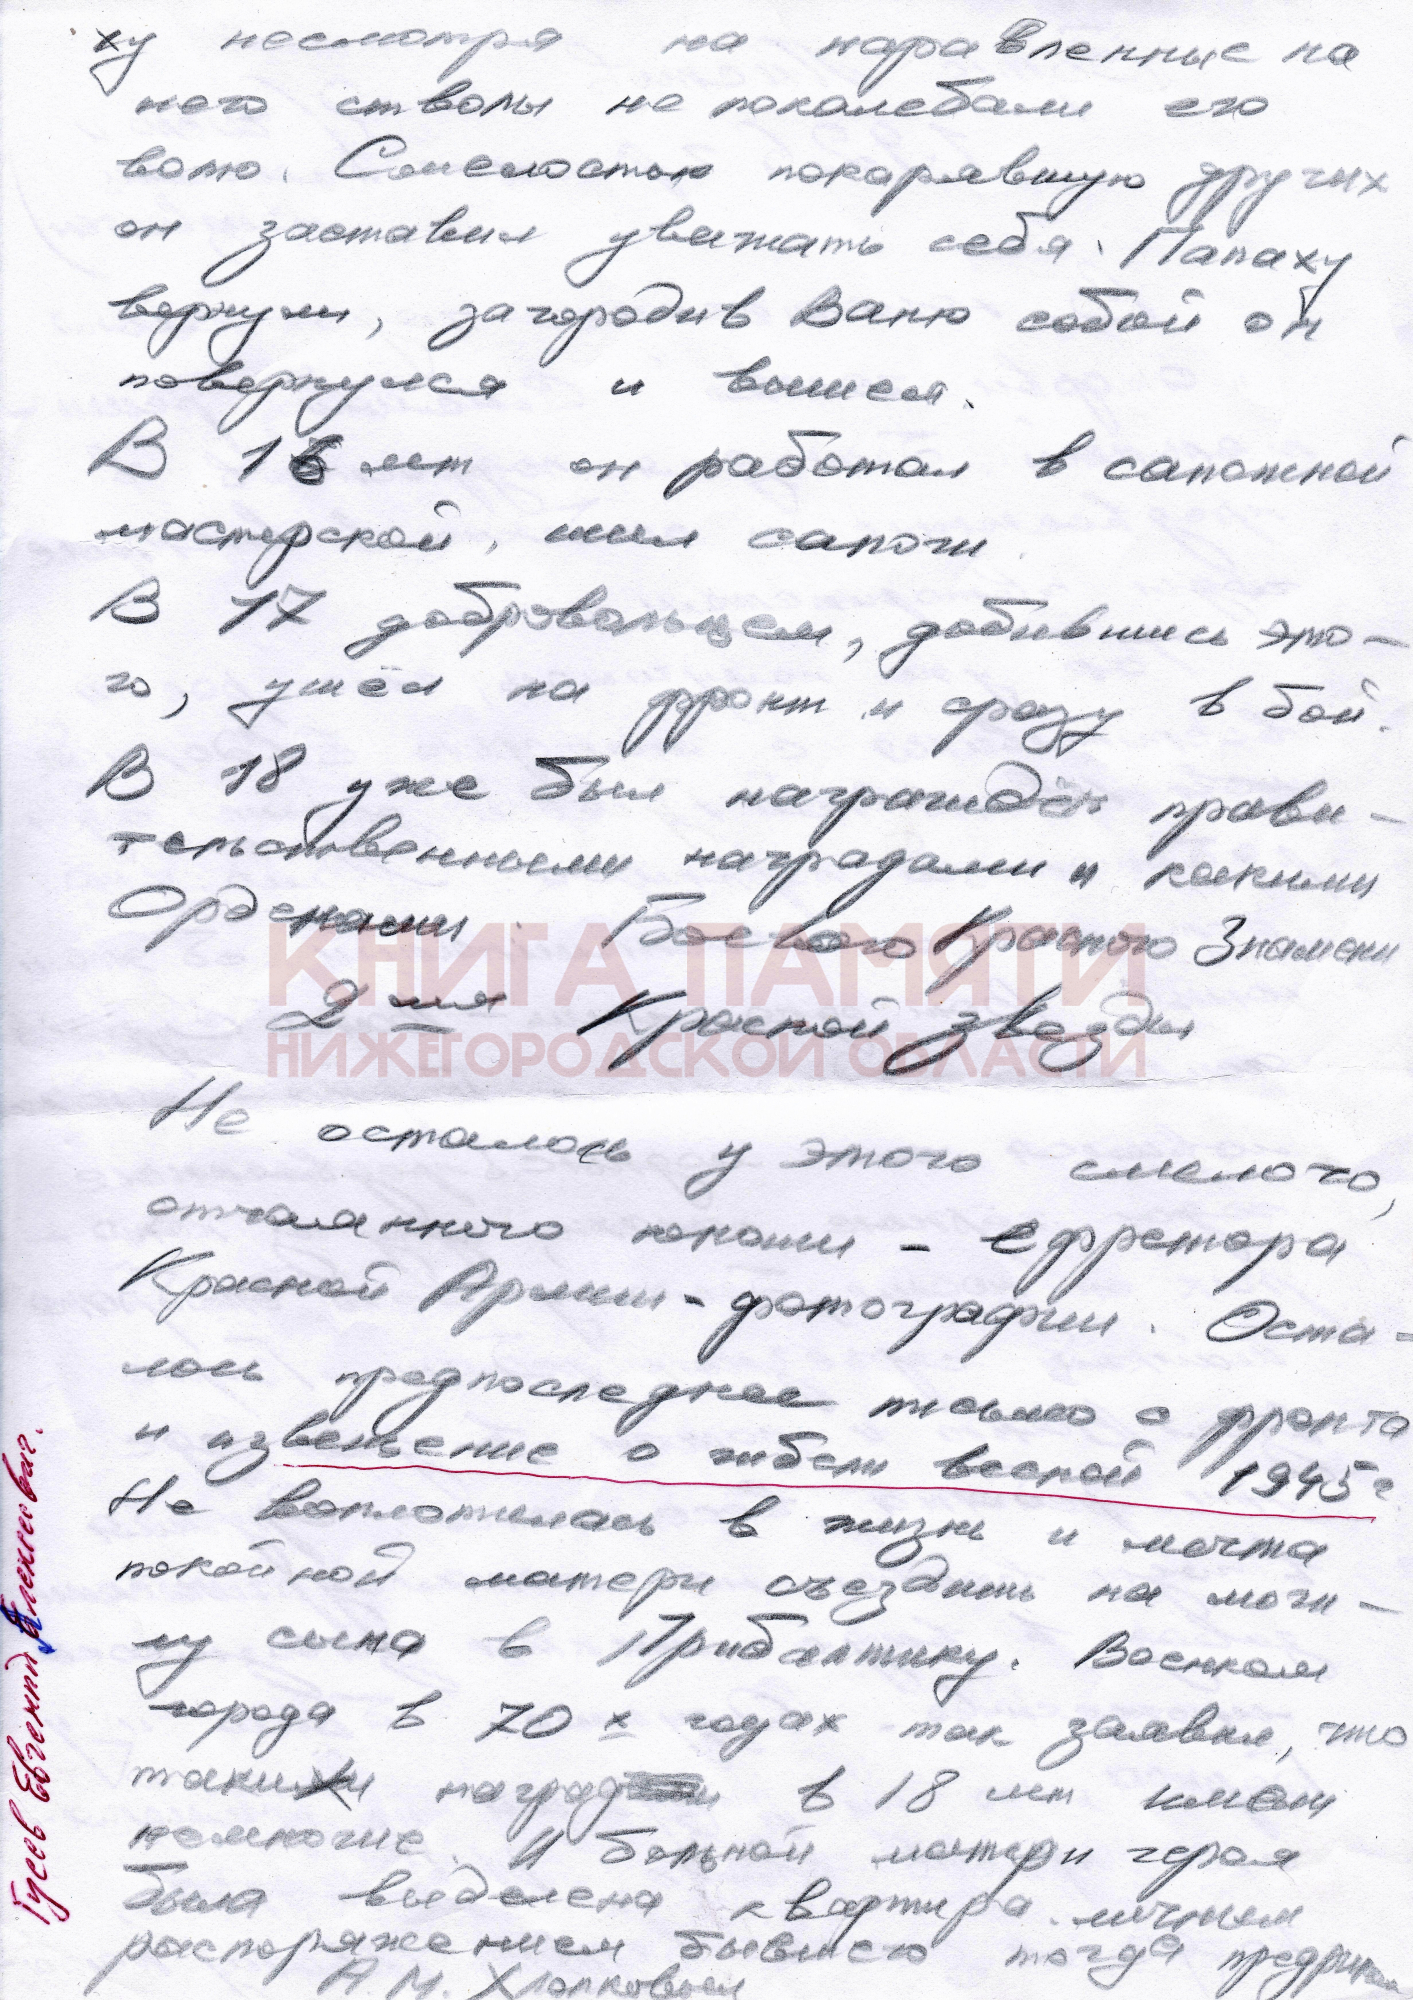 ху несмотря на наравленные на
него стволы не поколебали его
волю. Смелостью покарявшую других
он заставил уважать себя. Папаху
вернули, загородив Ваню собой он
повернулся и вышел.
В 16 лет он работал в сапожной
мастерской, шил сапоги.
В 17 добровольцем, добившись это-
го, ушёл на фронт и сразу в бой.
В 18 уже был награждён прави-
тельственными наградами и какими
Орденами Боевого Красного Знамени
КНИГА ПАМЯТИ
2мя Красной звезды
НИЖЕГОРОДСКОЙ ОБЛАСТИ
Не осталось у этого смелого,
отчаянного юноши - ефрейтора
Красной Армии - фотографии. Оста-
лось предпоследнее письмо с фронта
и извещение о гибели весной 1945 г
Не воплотилась в жизнь и мечта
покойной матери съездить на моги-
лу сына в Прибалтику. Военком
города в 70х годах так заявил, что
таких наград в 18 лет имели
немногие. И больной матери героя
была выделена квартира личным
распоряжением бывшего тогда
А.М. Хлопковым
Гусев Евгений Алексеевич.